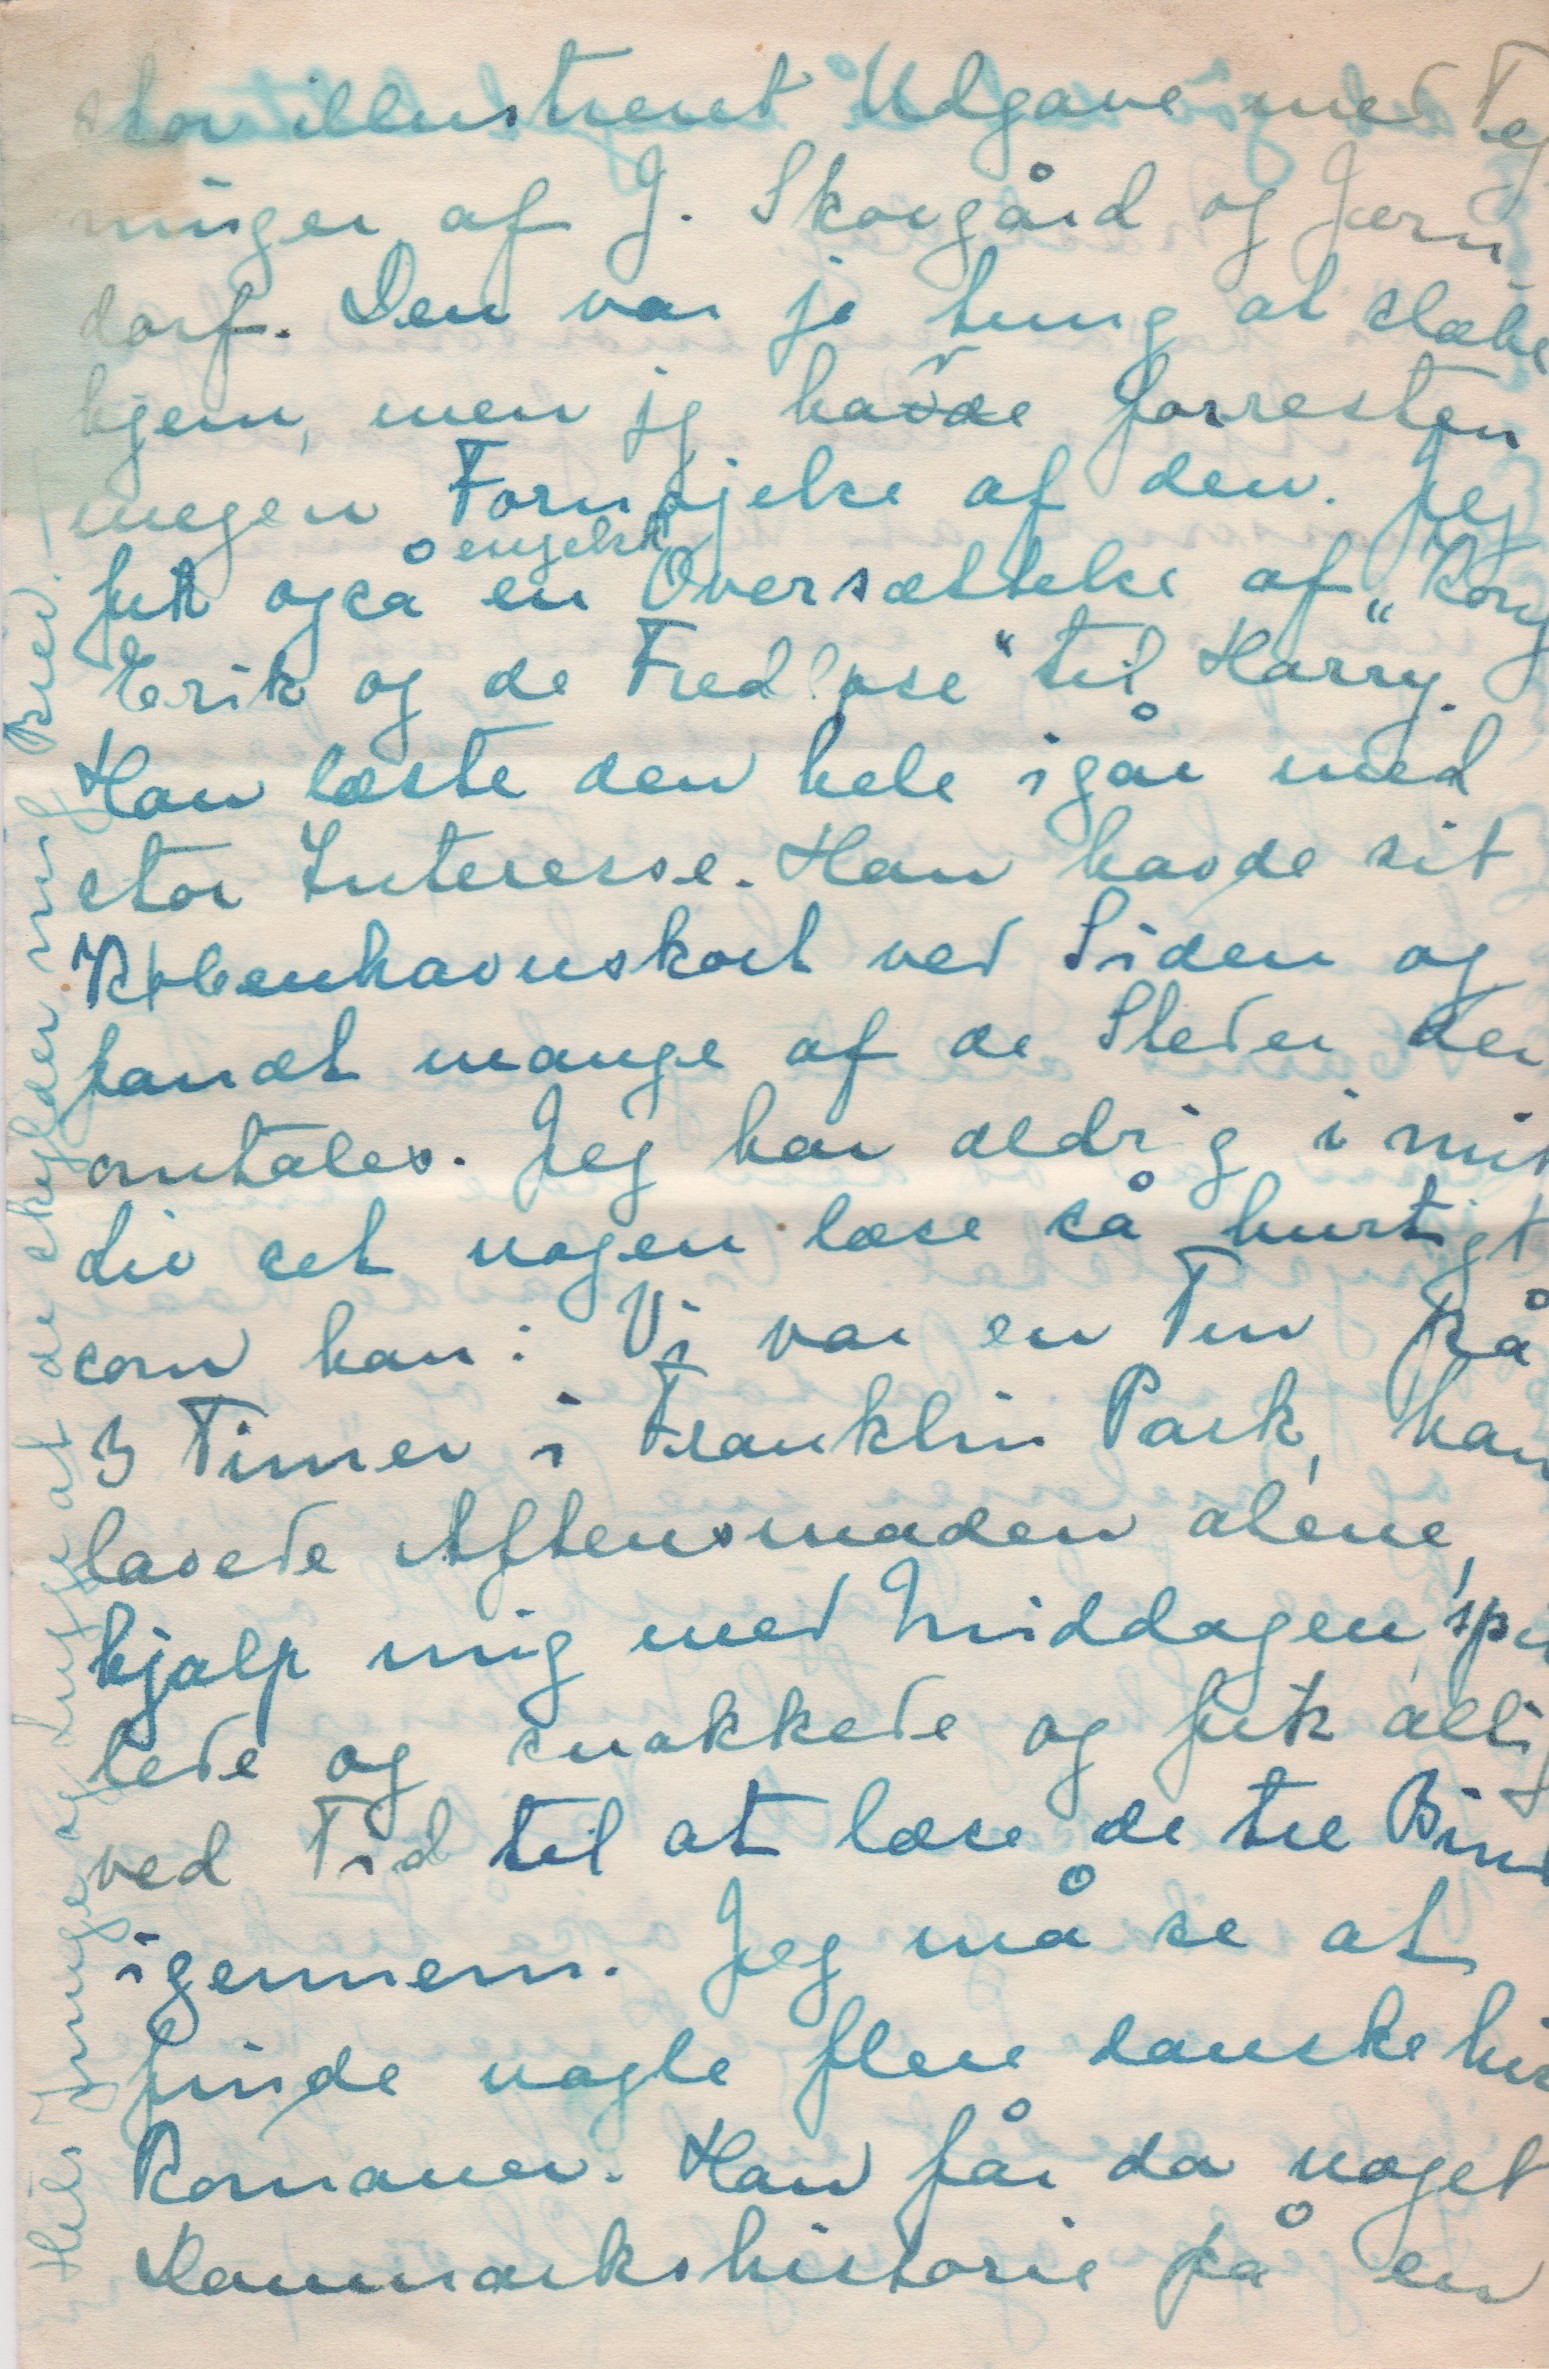 stor illustreret Udgave med Teg
ninger af J. Skovgård og Jern
dorf. Den var jo tung at slæbe
hjem, men jeg havde forresten
megen Fornøjelse af den. Jeg
fik også en engelsk Oversættelse af „Kong
Erik og de Fredløse“ til Harry.
Han læste den hele igår med
stor Interesse. Han havde sit
Københavnskort ved Siden og
fandt mange af de Steder der
omtales. Jeg har aldrig i mit
Liv set nogen læse så hurtigt
som han: Vi var en Tur på
3 Timer i Franklin Park, han
lavede Aftensmaden alene,
hjalp mig med Middagen, spil
lede og snakkede og fik allig
ved Tid til at læse de tre Bind
igennem. Jeg må se at
finde nogle flere danske his
Romaner. Han får da noget
Danmarkshistorie på en
Hils Inge og at de skylder mig Brev.